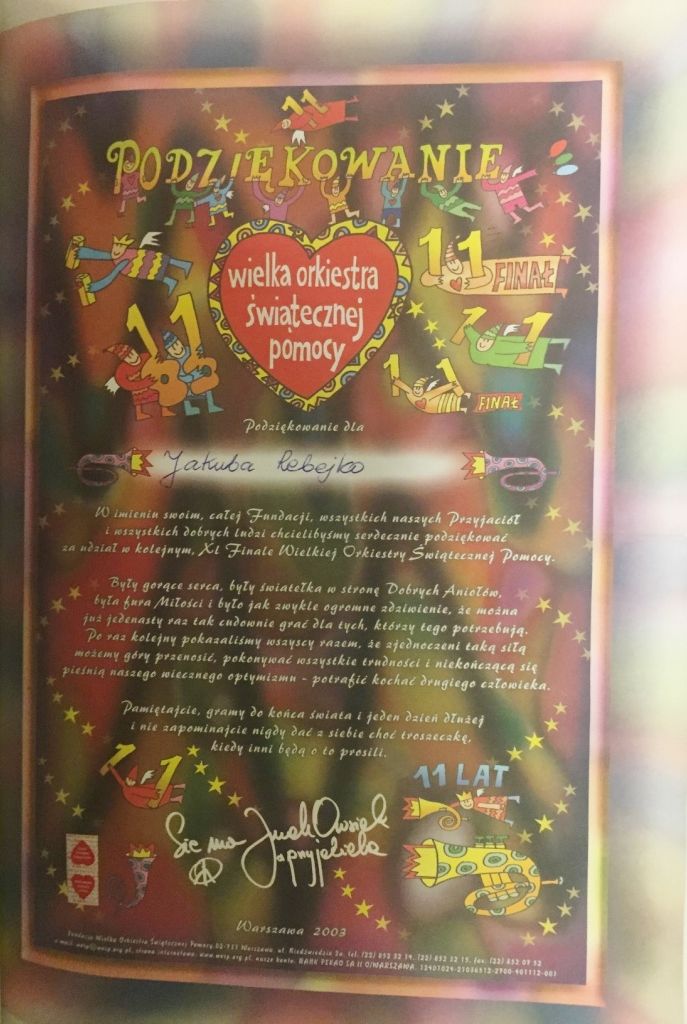 11
PODZIĘKOWANIE
wielka orkiestra
świątecznej
pomocy
11 FINAŁ
11
11
11 FINAŁ
Podziękowanie dla
Jakuba Rebejko
W imieniu swoim, całej Fundacji, wszystkich naszych Przyjaciół
i wszystkich dobrych ludzi chcielibyśmy serdecznie podziękować
za udział w kolejnym, XI Finale Wielkiej Orkiestry Świątecznej Pomocy.
Były gorące serca, były światełka w stronę Dobrych Aniołów,
była fura Miłości i było jak zwykle ogromne zdziwienie, że można
już jedenasty raz tak cudownie grać dla tych, którzy tego potrzebują.
Po raz kolejny pokazaliśmy wszyscy razem, że zjednoczeni taką siłą
możemy góry przenosić, pokonywać wszystkie trudności i niekończącą się
pieśnią naszego wiecznego optymizmu - potrafić kochać drugiego człowieka.
Pamiętajcie, gramy do końca świata i jeden dzień dłużej
i nie zapominajcie nigdy dać z siebie choć troszeczkę,
kiedy inni będą o to prosili.
11
11 LAT
Sie ma Jurek Owsiak
Warszawa 2003
Fundacja Wielka Orkiestra Świątecznej Pomocy, 02-731 Warszawa, ul. Niedźwiedzia 2a, tel. (22) 852 32 14, (22) 852 32 15, fax: (22) 852 09 52
e-mail: wosp@wosp.org.pl, strona internetowa: www.wosp.org.pl, nasze konto: BANK PEKAO SA II O/WARSZAWA,